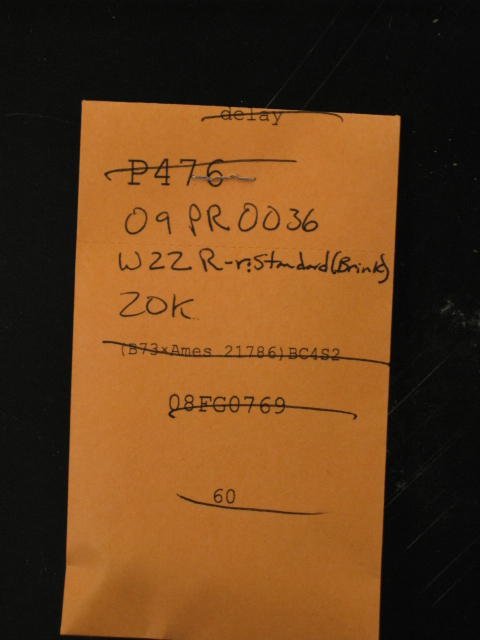 delay
P476
09PR0036
W22 R-r:Standard(Brink)
20K
(B73xAmes 21786)BC4S2
08FG0769
60